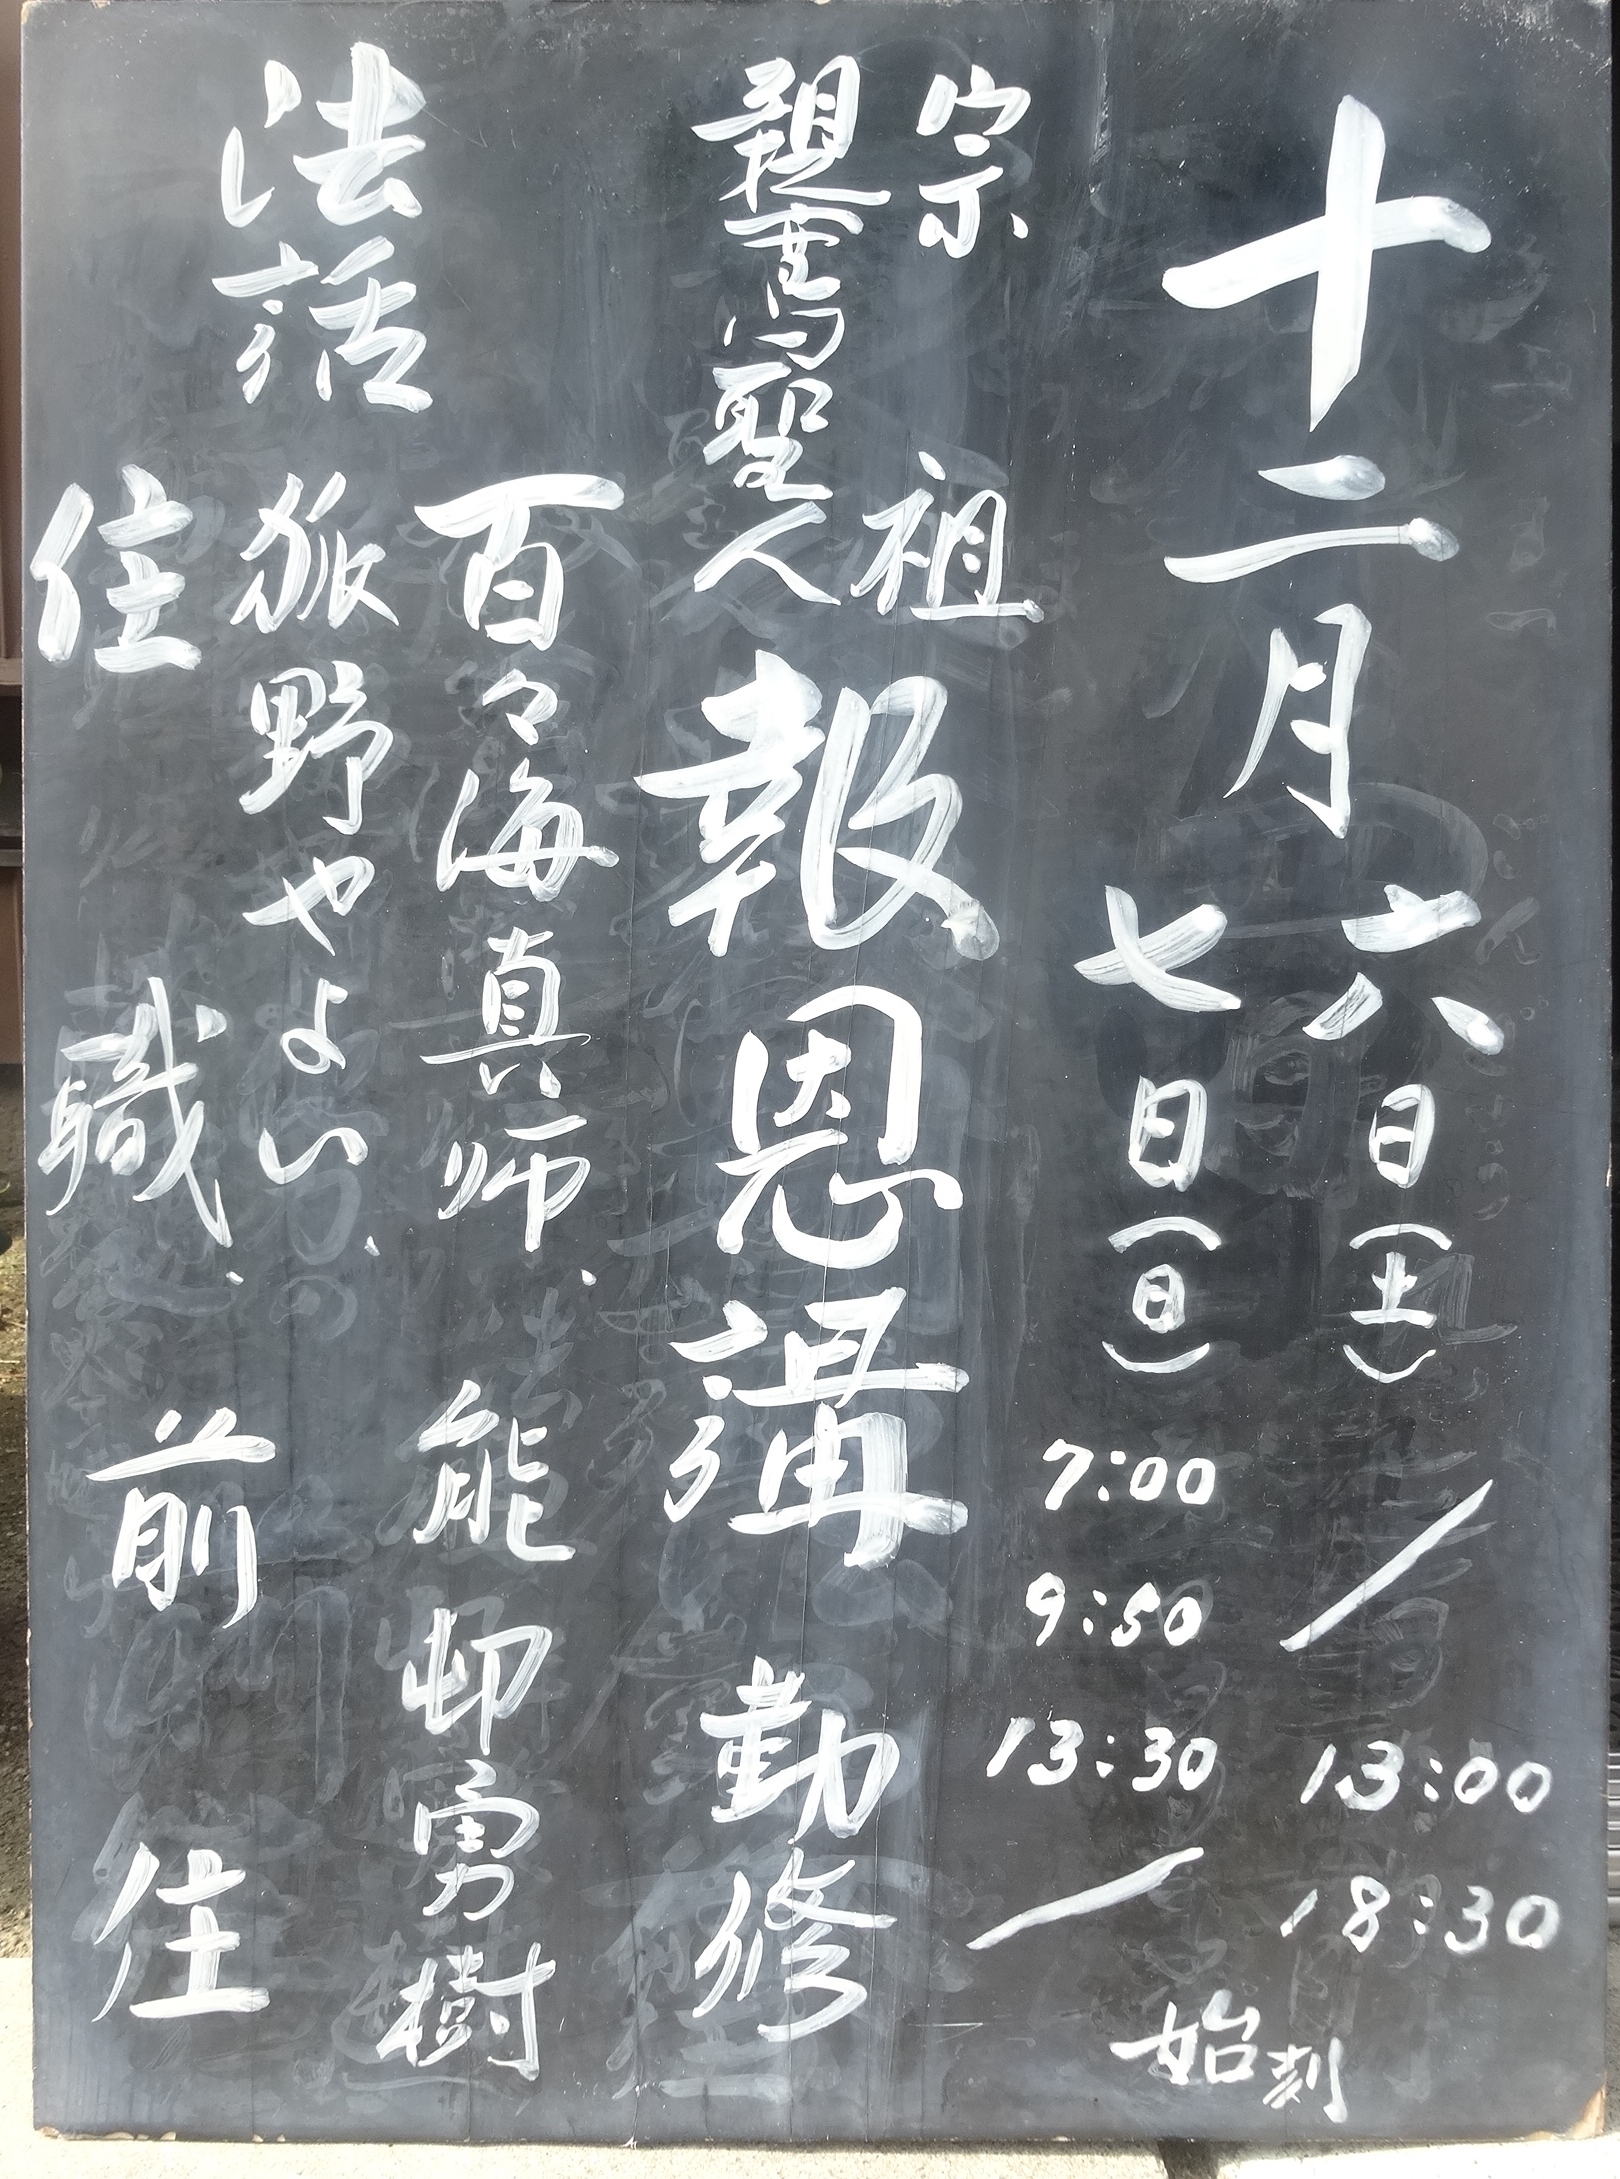 十二月
六日(土) / 13:00 18:30
七日(日) 7:00 9:50 13:30 /
始刻
宗祖
親鸞聖人
報恩講 勤修
法話
百々海真師、能邨勇樹
狐野やよい、
住職、前住